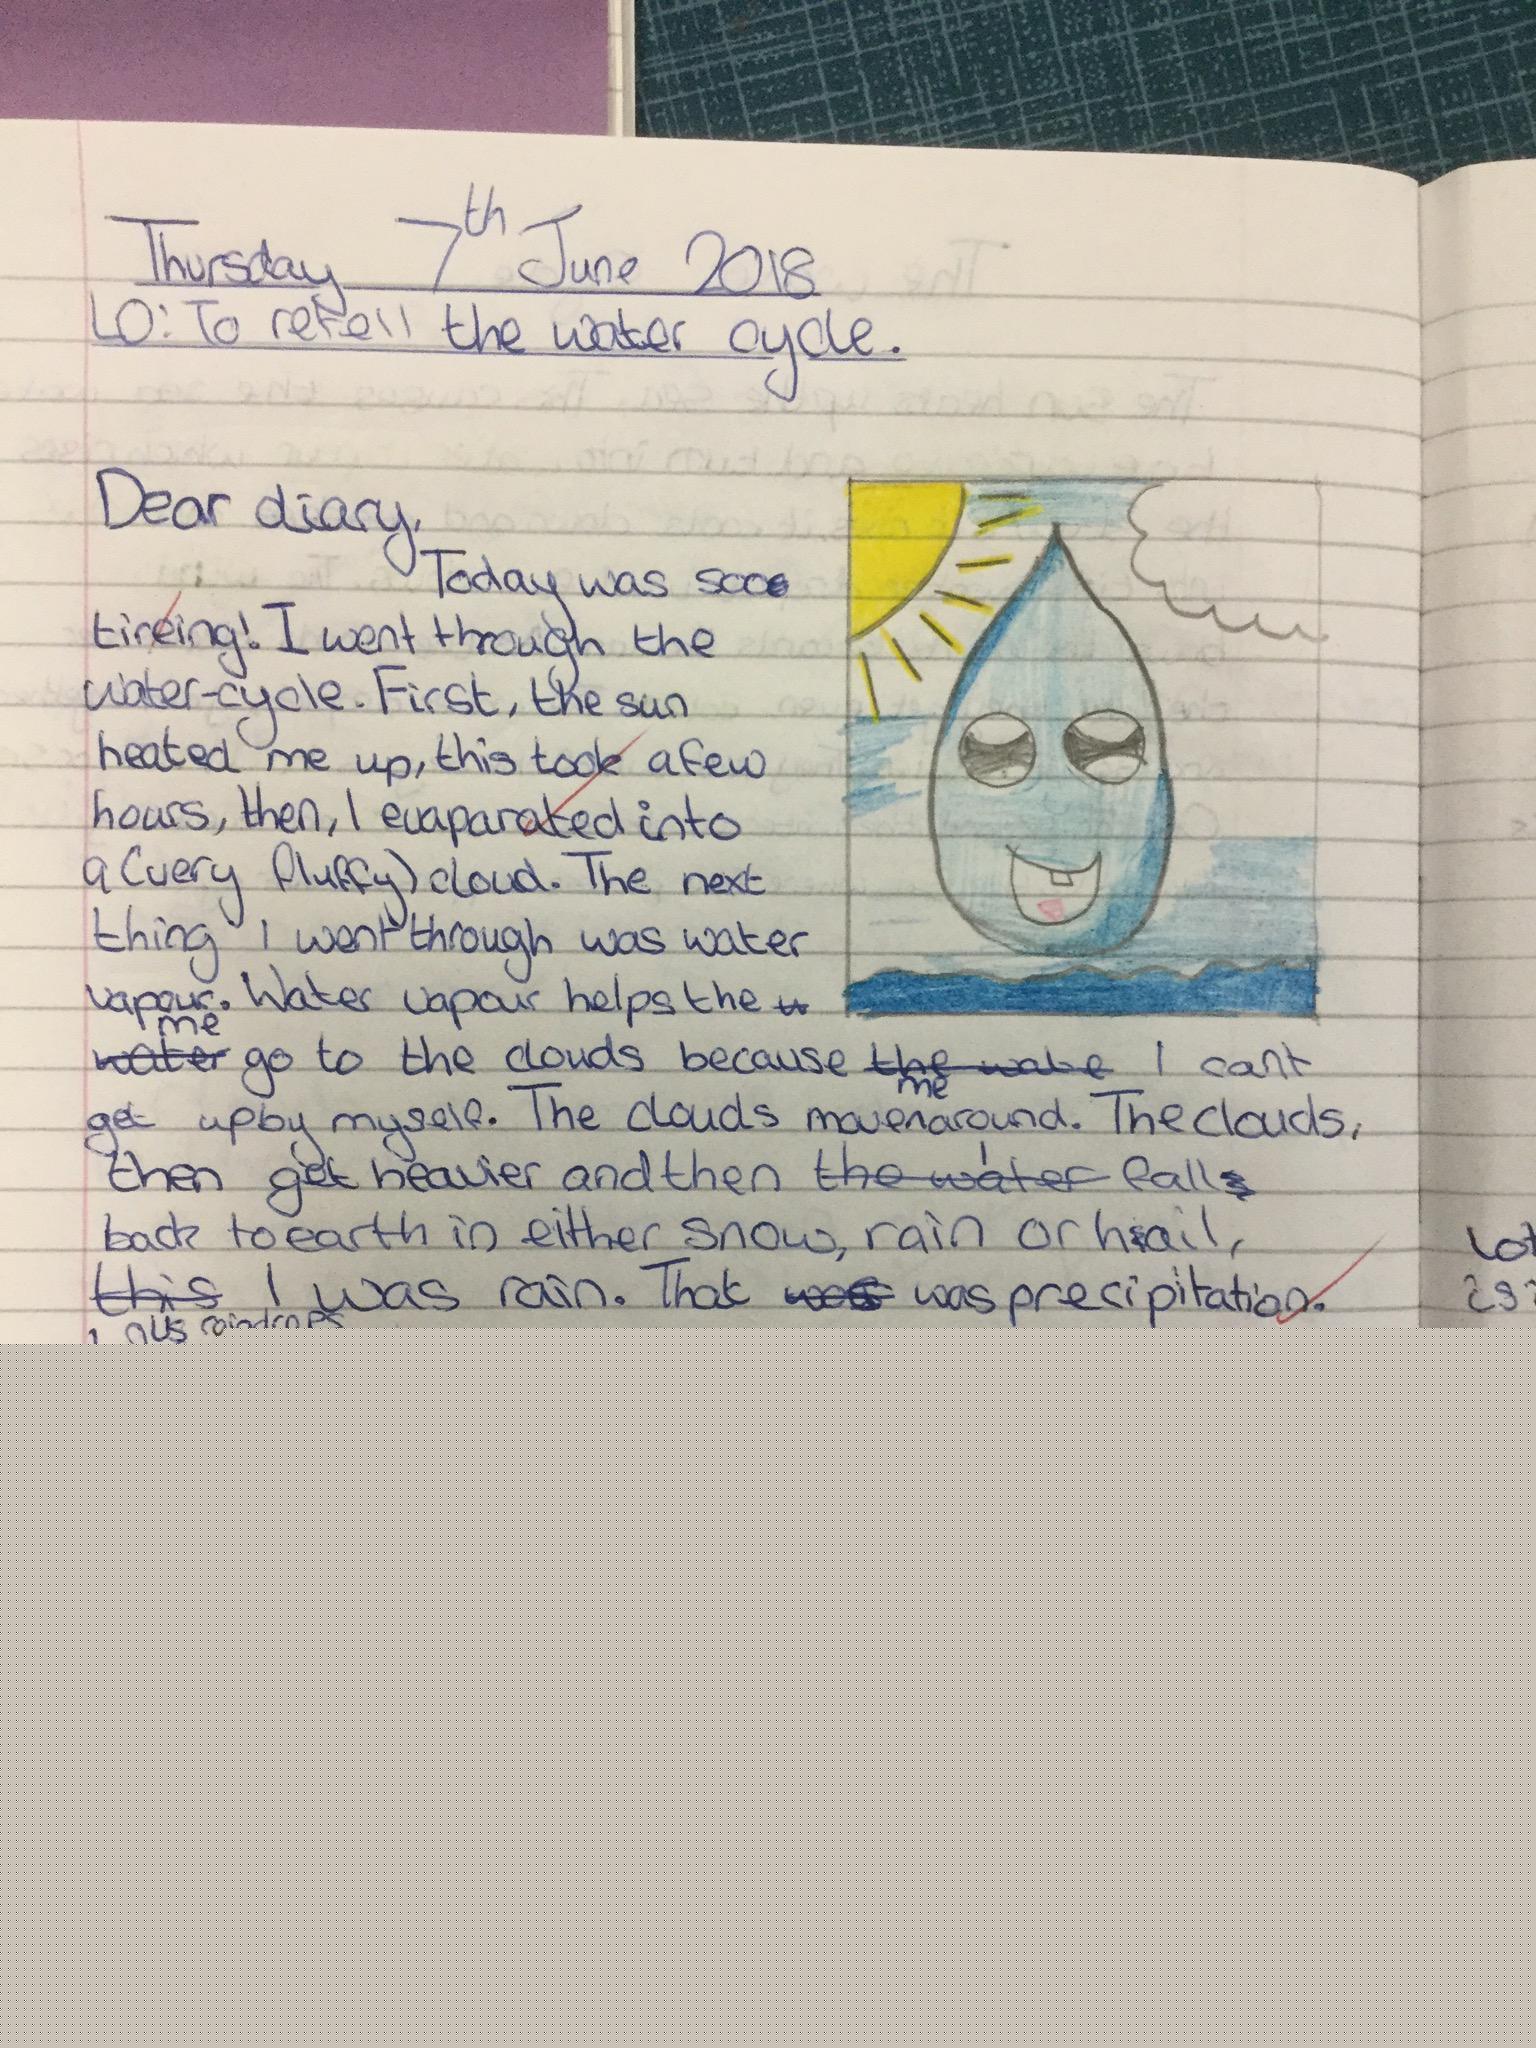 Thursday 7th June 2018
LO: To retell the water cycle.
Dear diary,
Today was sooo
tireing! I went through the
water-cycle. First, the sun
heated me up, this took a few
hours, then, I evaparated into
a (very fluffy) cloud. The next
thing I went through was water
vapour. Water vapour helps the
me
water go to the clouds because the wate I can't
get up by myself. The clouds move me around. The clouds,
then get heavier and then the water I fall
back to earth in either snow, rain or hail,
this I was rain. That was was precipitation.
raindrops